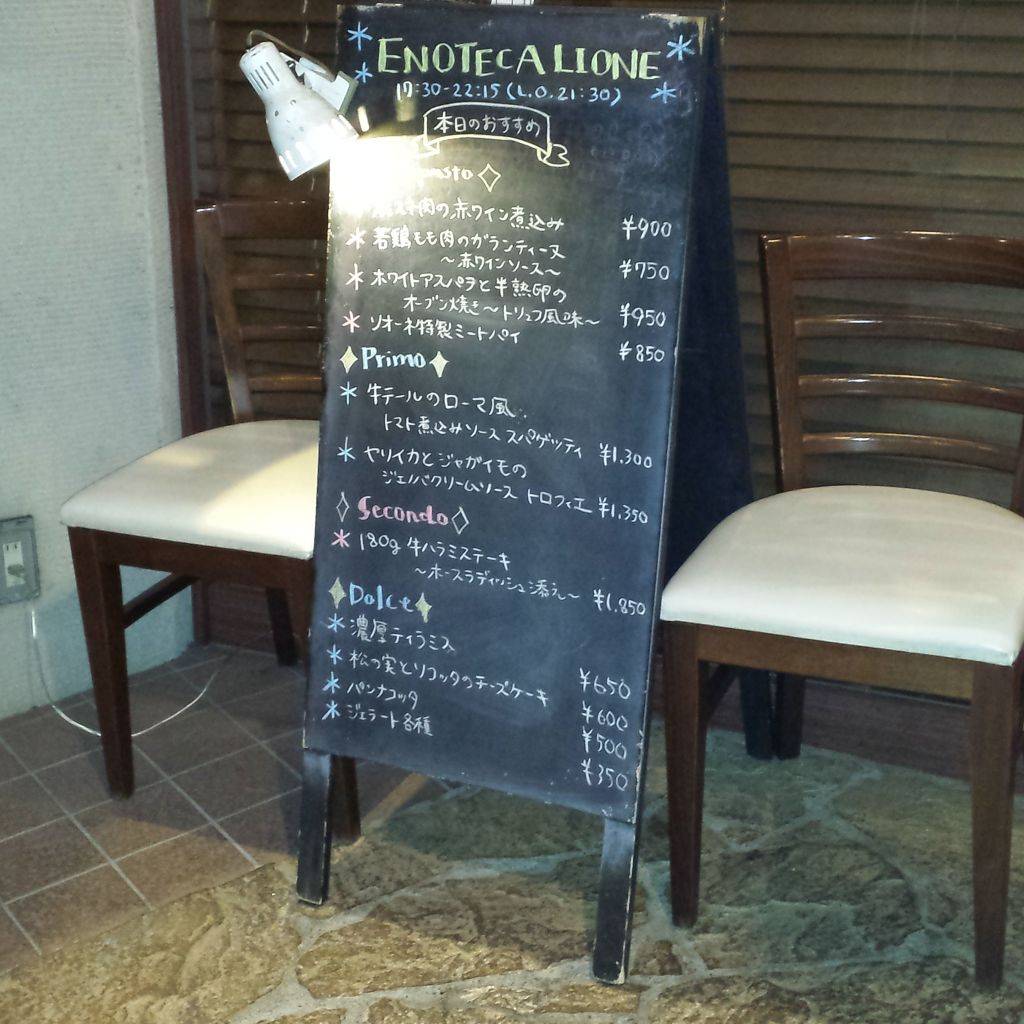 ENOTECA LIONE
17:30-22:15 (L.O.21:30)
本日のおすすめ
肉の赤ワイン煮込み ¥900
若鶏もも肉のガランティーヌ
～赤ワインソース～ ¥750
ホワイトアスパラと半熟卵の
オーブン焼き～トリュフ風味～ ¥950
リオーネ特製ミートパイ ¥850
Primo
牛テールのローマ風
トマト煮込みソース スパゲッティ ¥1,300
ヤリイカとジャガイモの
ジェノバクリームソース トロフィエ ¥1,350
Secondo
180g 牛ハラミステーキ
～ホースラディッシュ添え～ ¥1,850
Dolce
濃厚ティラミス ¥650
松の実とリコッタのチーズケーキ ¥600
パンナコッタ ¥500
ジェラート各種 ¥350